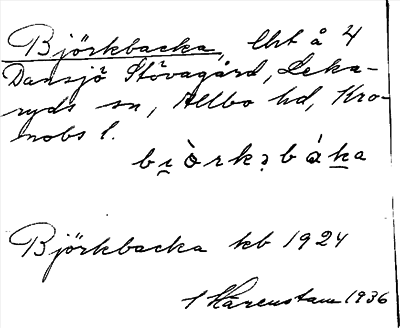 Björkbacka, lht å 4
Dansjö Stövagård, Leka-
ryds sn, Allbo hd, Kro-
nobs l.
bi̯òrkəbáka
Björkbacka kb 1924
1 Härenstam 1936